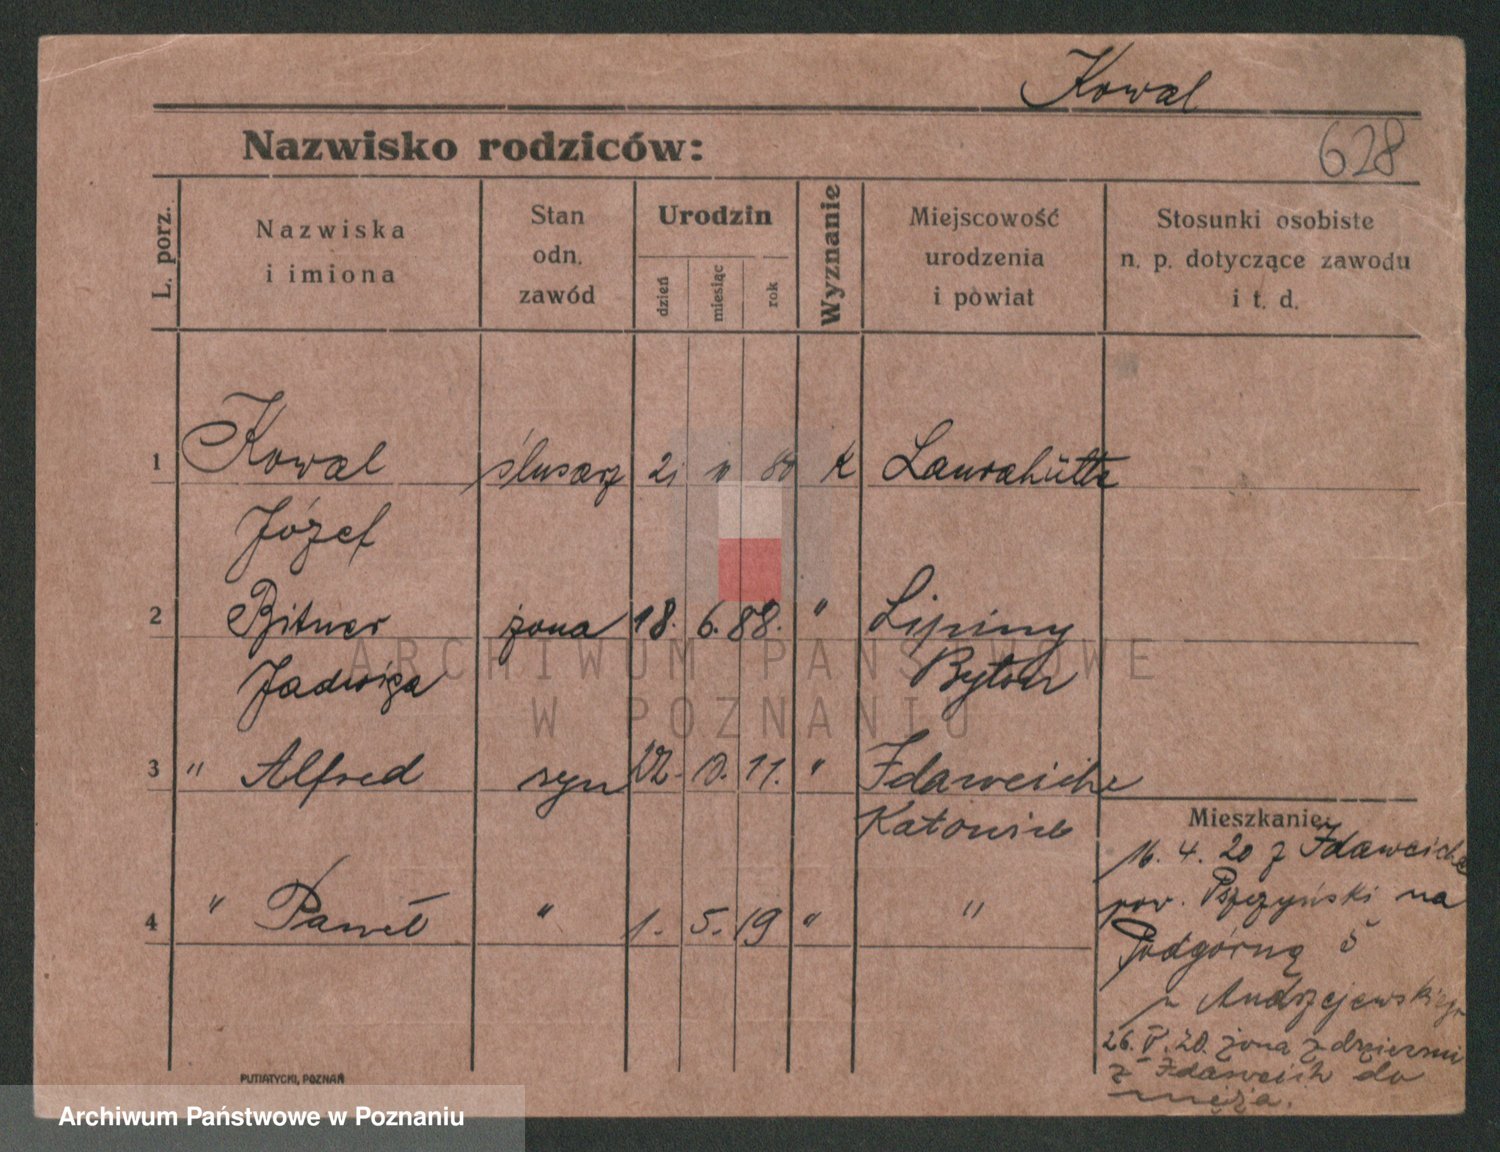 Kowal
628
Nazwisko rodziców:
L. porz.
Nazwiska
i imiona
Stan
odn.
zawód
Urodzin
dzień
miesiąc
rok
Wyznanie
Miejscowość
urodzenia
i powiat
Stosunki osobiste
n. p. dotyczące zawodu
i t. d.
1 Kowal ślusarz K Laurahütte
Józef
2 Bitner żona 18. 6. 88. " Lipiny
Jadwiga Bytom
3 " Alfred syn 22. 11. " Idaweiche
Katowice
4 " Paweł " 1. 5. 19 " "
Mieszkanie:
16. 4. 20 z Idaweiche
pow. Pszczyński na
Podgórną 5
u Andrzejewskiego
26. V. 20. żona z dziećmi
z Idaweich do
męża.
PUTIATYCKI, POZNAŃ
ARCHIWUM PAŃSTWOWE
W POZNANIU
Archiwum Państwowe w Poznaniu